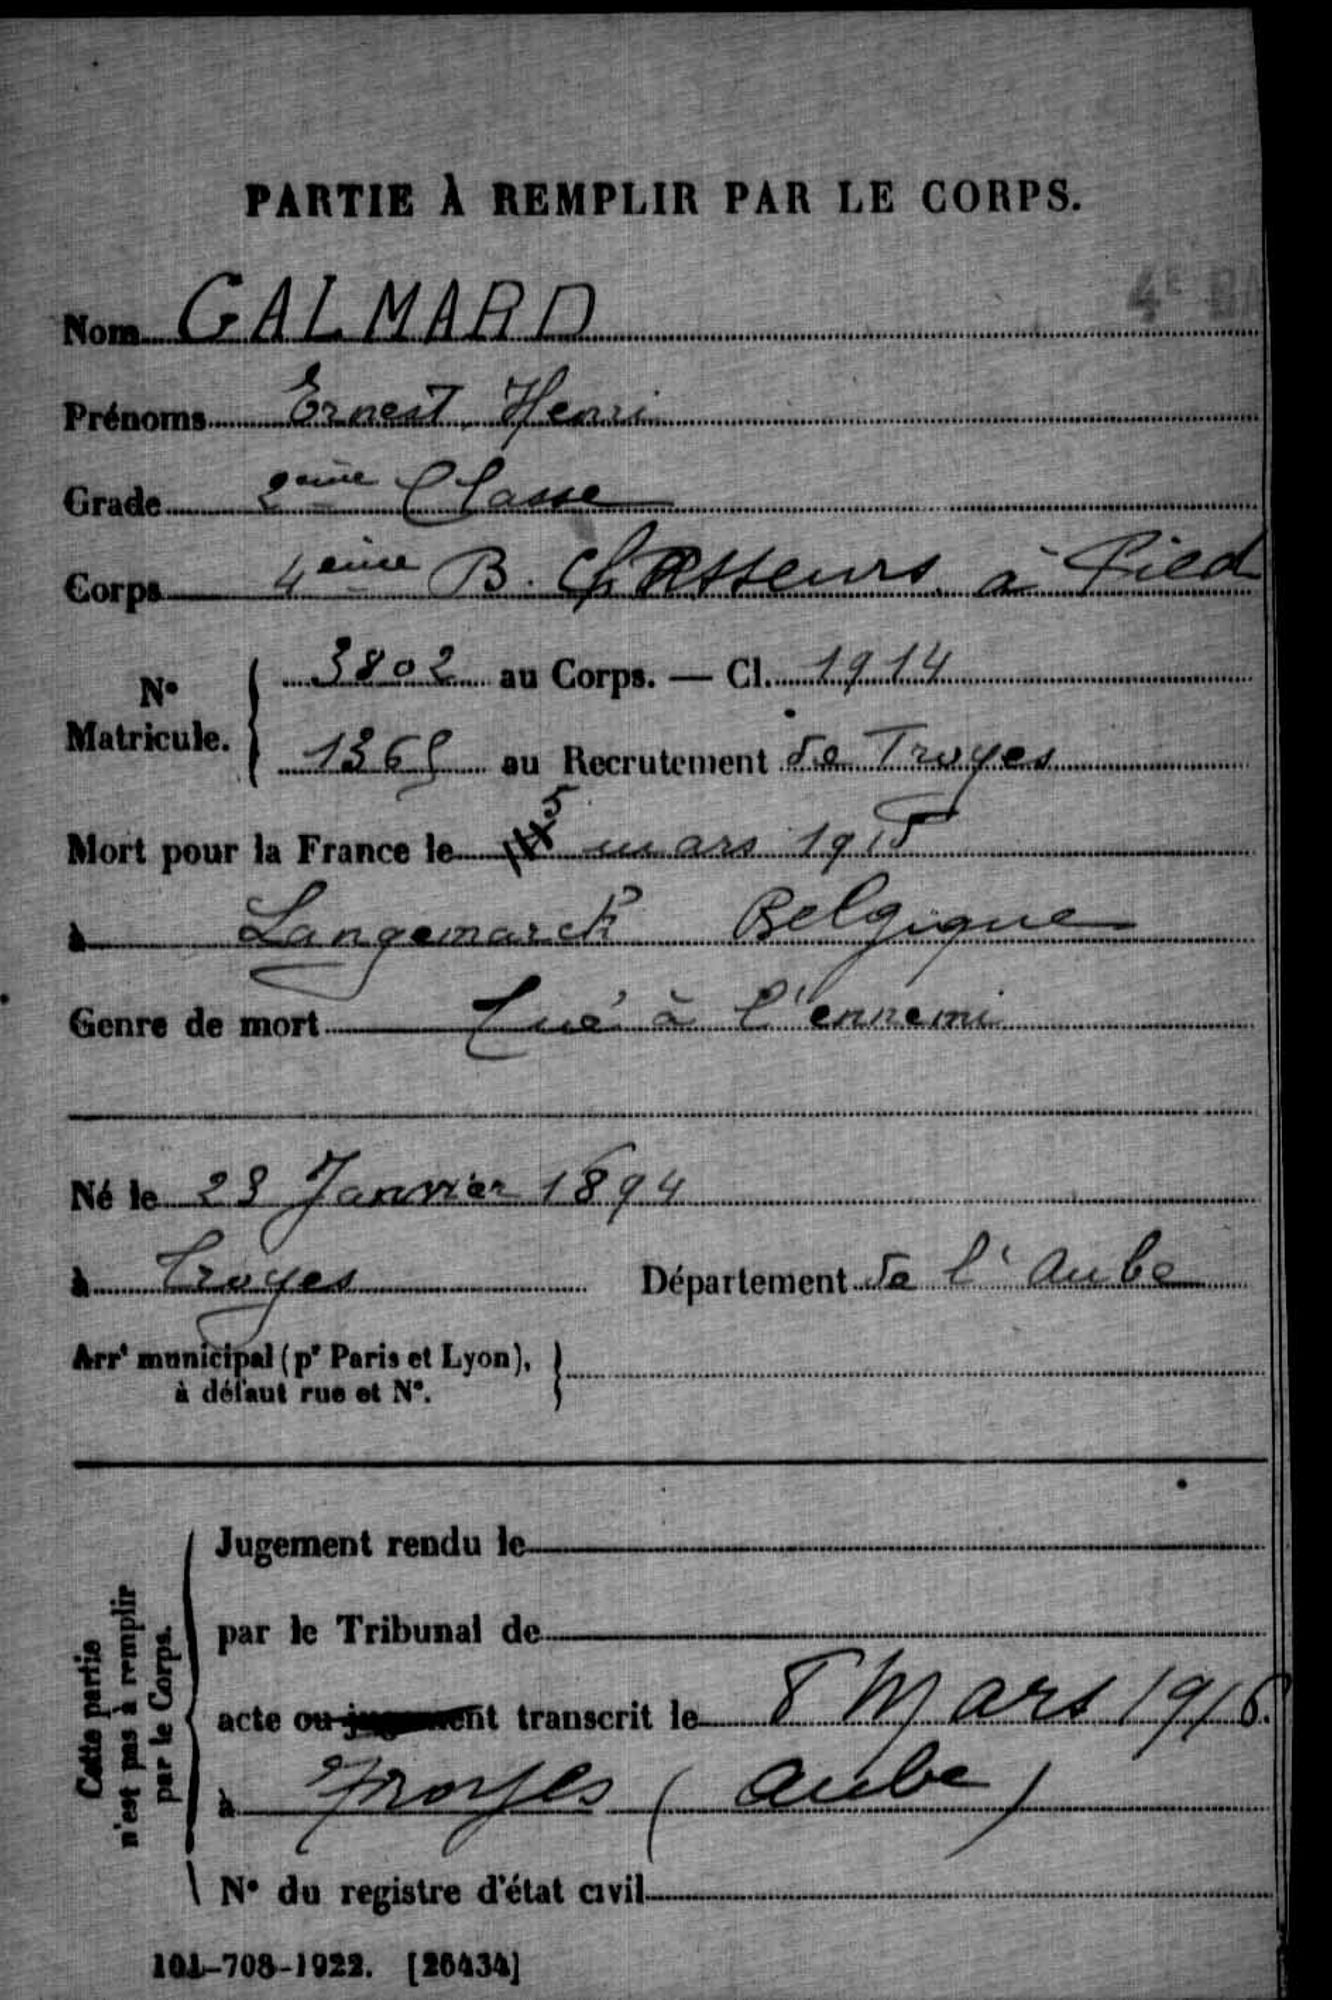 PARTIE À REMPLIR PAR LE CORPS.
4E
Nom GALMARD
Prénoms Ernest Henri
Grade 2ème Classe
Corps 4ème B. Chasseurs à Pied
N° Matricule. 3802 au Corps. — Cl. 1914
1365 au Recrutement de Troyes
Mort pour la France le 5 mars 1915
à Langemarck Belgique
Genre de mort Tué à l'ennemi
Né le 23 Janvier 1894
à Troyes Département de l'Aube
Arrt municipal (pr Paris et Lyon),
à défaut rue et N°.
Cette partie
n'est pas à remplir
par le Corps.
Jugement rendu le
par le Tribunal de
acte ou jugement transcrit le 8 Mars 1916.
à Troyes (Aube)
N° du registre d'état civil
101-708-1922. [26434]